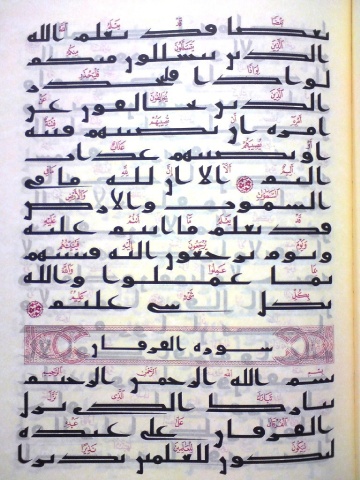 بعضا قد يعلم الله
الذين يتسللون منكم
لواذا فليحذر
الذين يخالفون عن
امره ان تصيبهم فتنة
او يصيبهم عذاب
اليم الا ان لله ما في
السموت والارض
قد يعلم ما انتم عليه
ويوم يرجعون اليه فينبئهم
بما عملوا والله
بكل شي عليم
سورة الفرقان
بسم الله الرحمن الرحيم
تبارك الذي نزل
الفرقان على عبده
ليكون للعلمين نذيرا